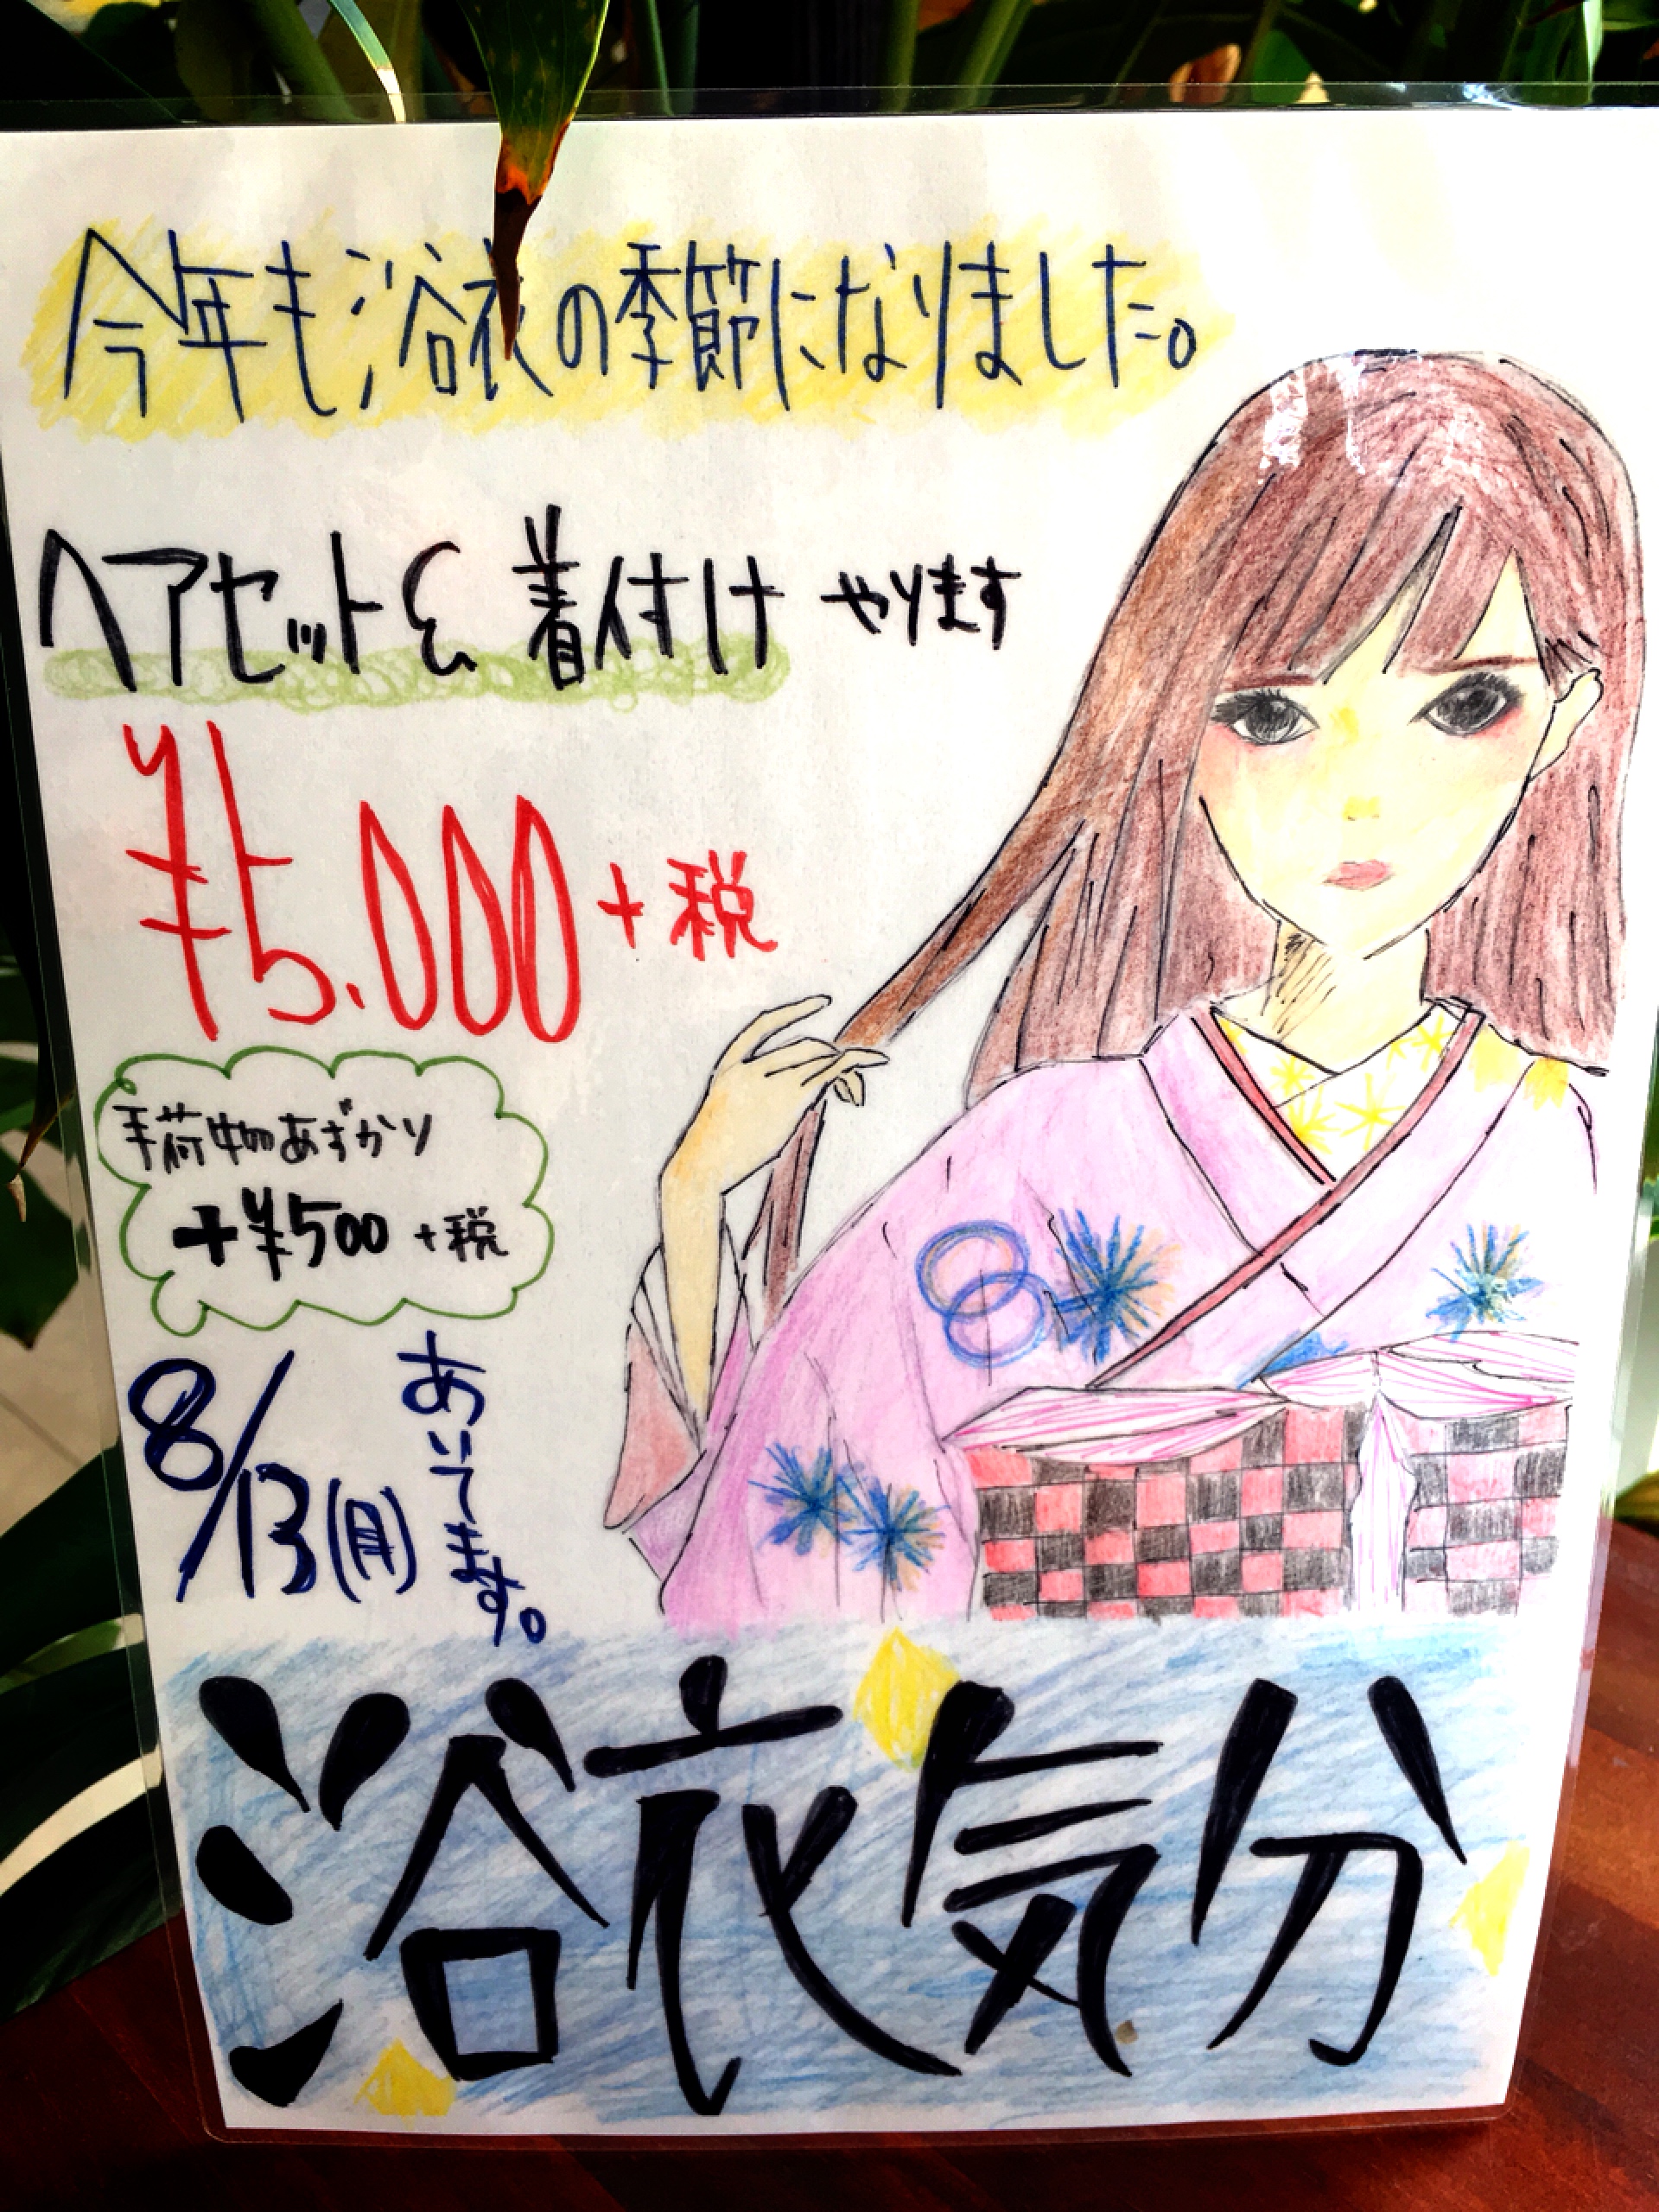 今年も浴衣の季節になりました。
ヘアセット& 着付け やります
¥5.000+税
手荷物あずかり
+¥500+税
8/13(月)
あいてます。
浴衣気分